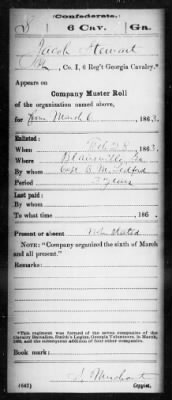 Confederate.
S 6 Cav. Ga.
Jacob Stewart
Co. I, 6 Reg't Georgia Cavalry.*
Appears on
Company Muster Roll
of the organization named above,
for from March 6, 1863.
Enlisted:
When Feb 28, 1863
Where Blairsville, Ga
By whom Capt. B. M. Ledford
Period 3 years
Last paid:
By whom
To what time , 186 .
Present or absent Not stated
NOTE: "Company organized the sixth of March and all present."
Remarks:
*This regiment was formed of the seven companies of the
Cavalry Battalion, Smith's Legion, Georgia Volunteers, in March,
1863, and the subsequent addition of four other companies.
Book mark:
(642)
Copyist.